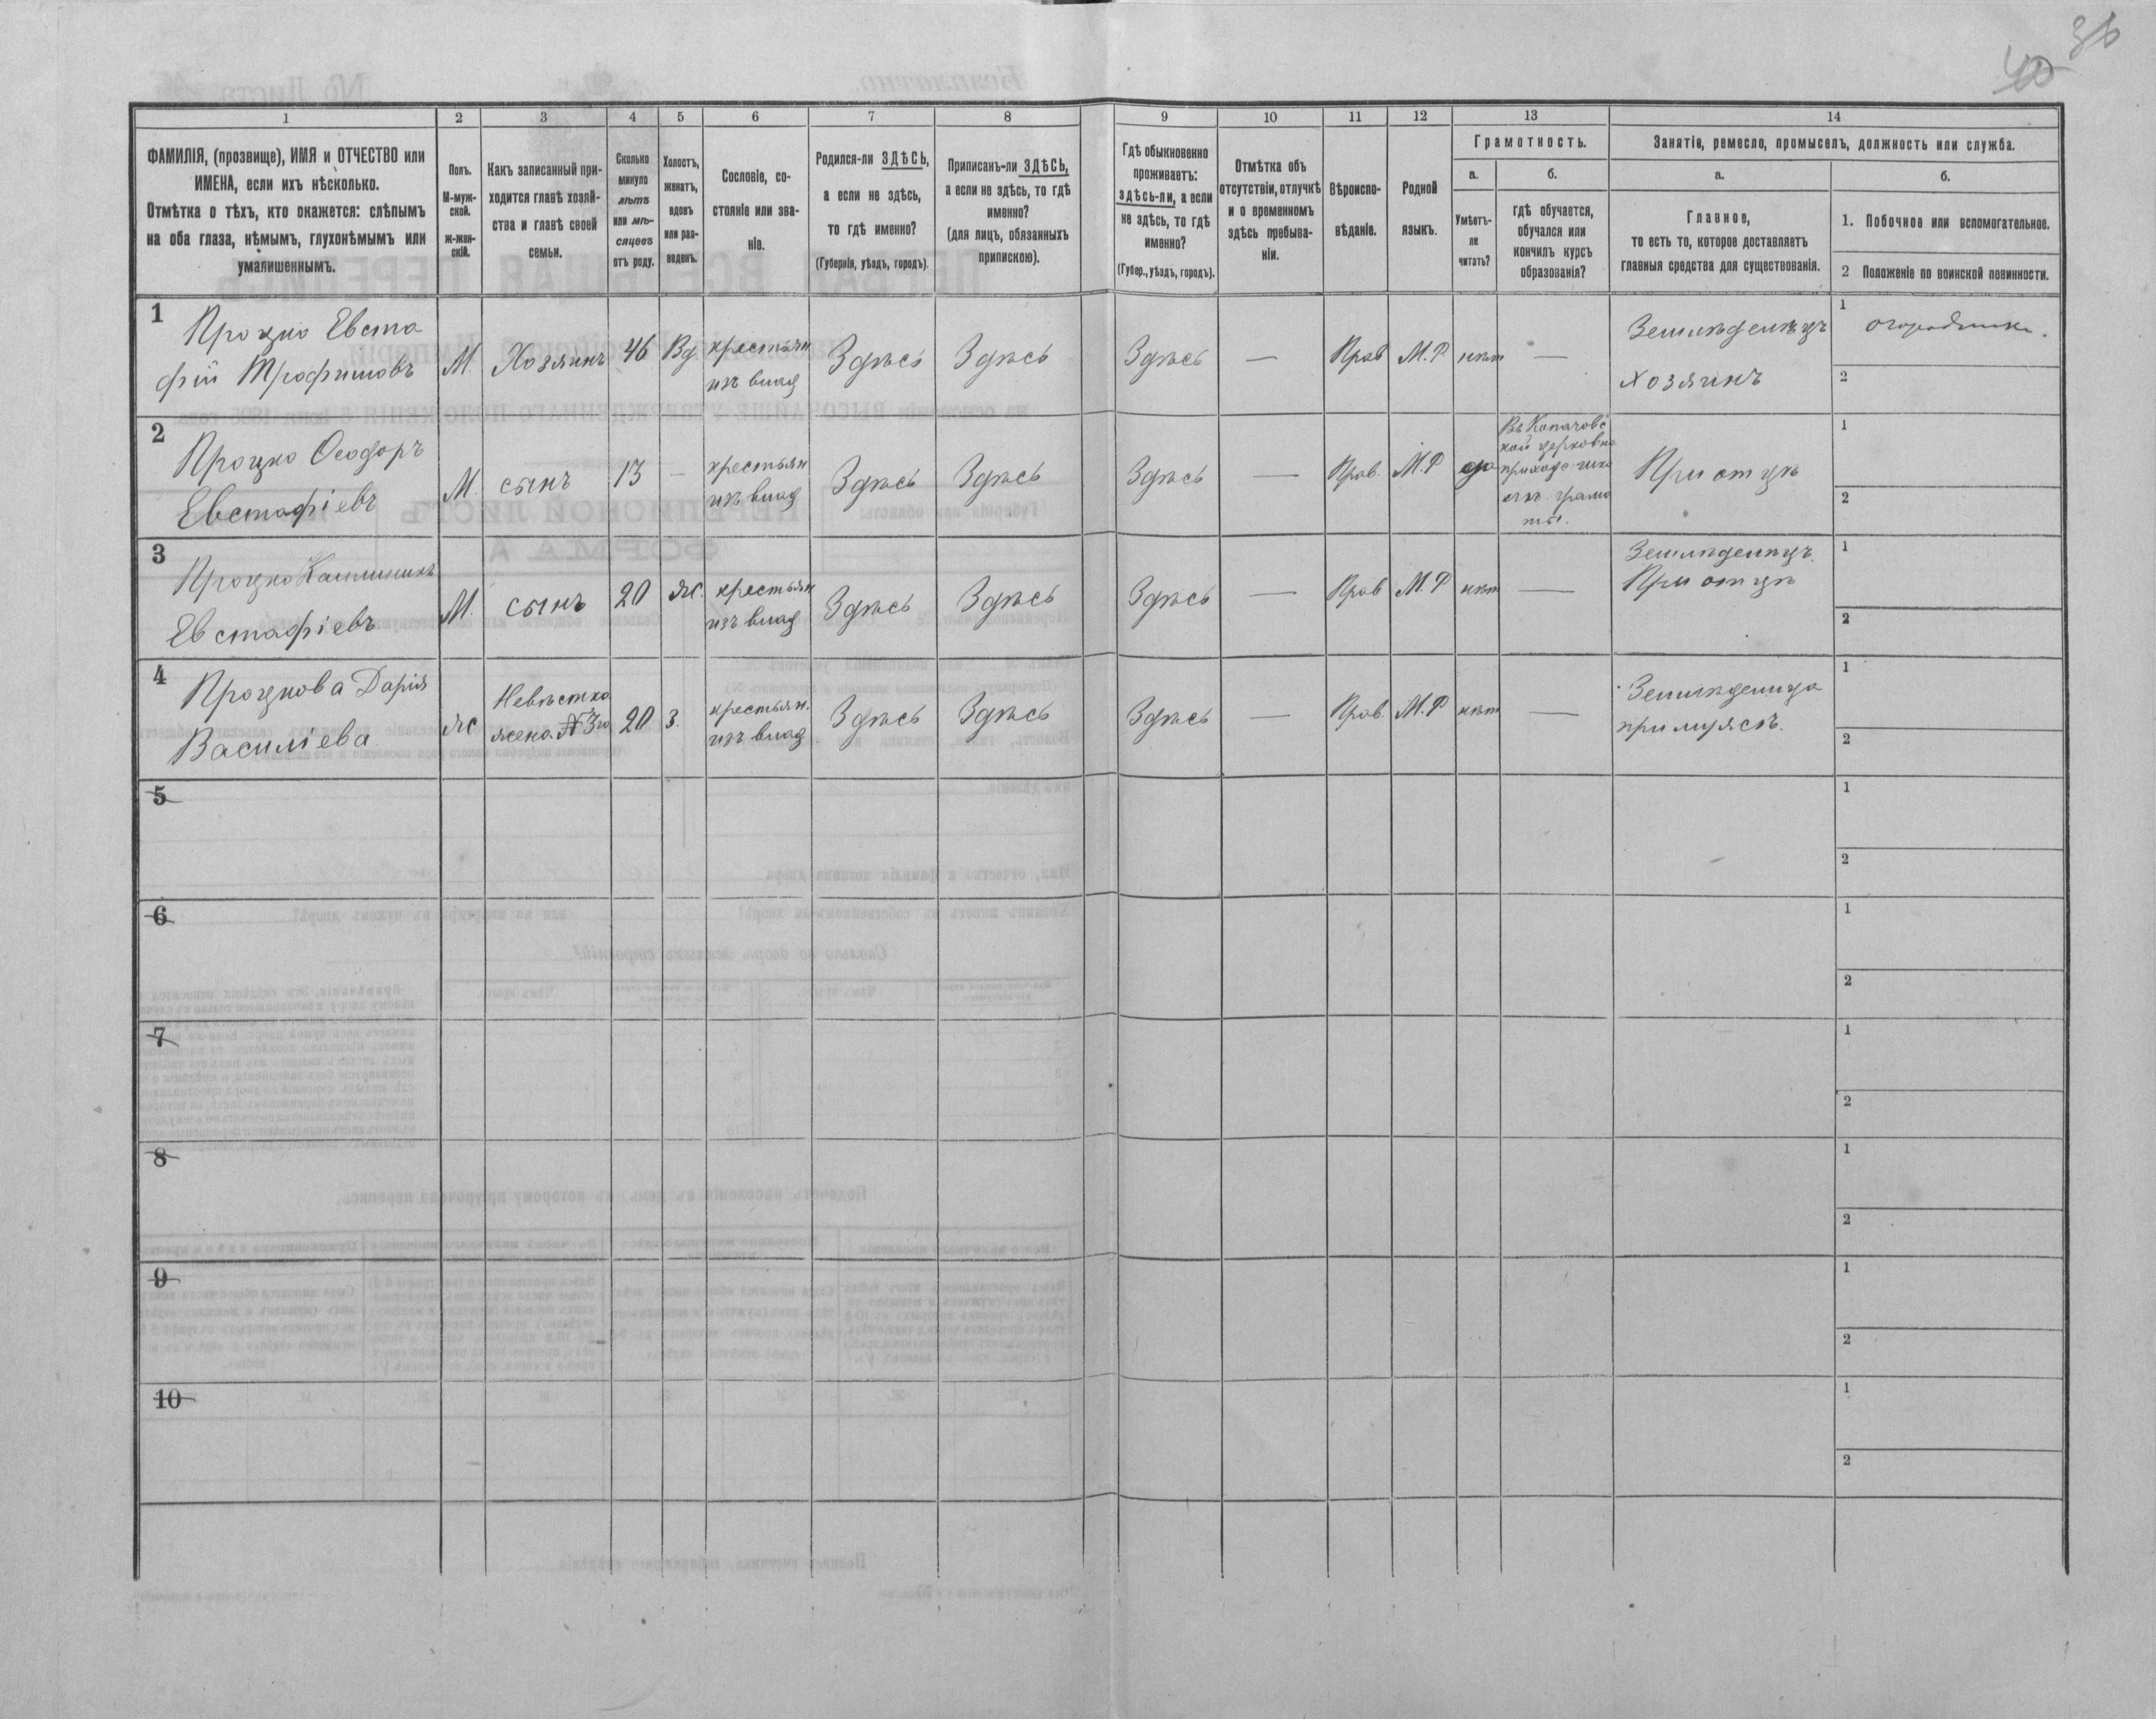 36
40
1
2
3
4
5
6
7
8
9
10
11
12
13
14
ФАМИЛІЯ, (прозвище), ИМЯ и ОТЧЕСТВО или
ИМЕНА, если ихъ нѣсколько.
Отмѣтка о тѣхъ, кто окажется: слѣпымъ
на оба глаза, нѣмымъ, глухонѣмымъ или
умалишеннымъ.
Полъ.
М-муж-
ской.
ж-жен-
скій.
Какъ записанный при-
ходится главѣ хозяй-
ства и главѣ своей
семьи.
Сколько
минуло
лѣтъ
или мѣ-
сяцевъ
отъ роду.
Холостъ,
женатъ,
вдовъ
или раз-
веденъ.
Сословіе, со-
стояніе или зва-
ніе.
Родился-ли ЗДѢСЬ,
а если не здѣсь,
то гдѣ именно?
(Губернія, уѣздъ, городъ).
Приписанъ-ли ЗДѢСЬ,
а если не здѣсь, то гдѣ
именно?
(для лицъ, обязанныхъ
припискою).
Гдѣ обыкновенно
проживаетъ:
здѣсь-ли, а если
не здѣсь, то гдѣ
именно?
(Губер., уѣздъ, городъ).
Отмѣтка объ
отсутствіи, отлучкѣ
и о временномъ
здѣсь пребыва-
ніи.
Вѣроиспо-
вѣданіе.
Родной
языкъ.
Грамотность.
а.
Умѣетъ-
ли
читать?
б.
гдѣ обучается,
обучался или
кончилъ курсъ
образованія?
Занятіе, ремесло, промыселъ, должность или служба.
а.
Главное,
то есть то, которое доставляетъ
главныя средства для существованія.
б.
1. Побочное или вспомогательное.
2 Положеніе по воинской повинности.
1
Процко Евста
фій Трофимовъ
М.
Хозяинъ
46
Вд
крестьян
изъ влад
Здѣсь
Здѣсь
Здѣсь
—
Прав
М.Р.
нѣт
—
Земледѣлецъ
хозяинъ
1
огородник.
2
2
Процко Ѳеодоръ
Евстафіевъ
М.
сынъ
13
—
крестьян
изъ влад
Здѣсь
Здѣсь
Здѣсь
—
Прав.
М.Р
да
Въ Копачовс
кой церковно
приходс.
грамо
ты.
При отцѣ
1
2
3
Процко Каллиникъ
Евстафіевъ
М.
сынъ
20
ж.
крестьян
изъ влад
Здѣсь
Здѣсь
Здѣсь
—
Прав
М.Р
нѣт
—
Земледѣлецъ.
При отцѣ
1
2
4
Процкова Дарія
Василіева
ж
Невѣстка
жена. №3го
20
з.
крестьян.
изъ влад.
Здѣсь
Здѣсь
Здѣсь
—
Прав.
М.Р
нѣт
—
Земледѣлица
при мужѣ.
1
2
5
1
2
6
1
2
7
1
2
8
1
2
9
1
2
10
1
2